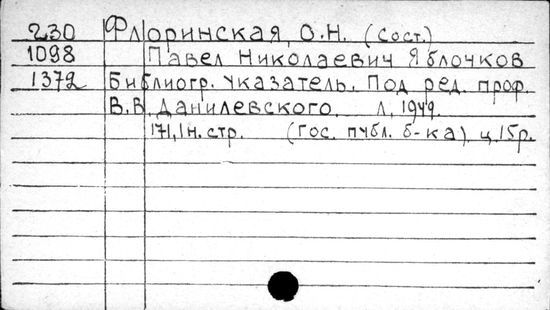 230 Флоринская, О.Н. (Сост.)
1098 Павел Николаевич Яблочков
1372 Библиогр. указатель. Под ред. проф.
В.В. Данилевского. Л, 1949.
171, 1 н. стр. (Гос. публ. б-ка), ц. 15р.